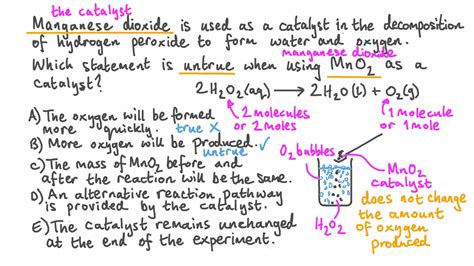 the catalyst
Manganese dioxide is used as a catalyst in the decomposition
of hydrogen peroxide to form water and oxygen.
manganese dioxide
Which statement is untrue when using MnO₂ as a
catalyst?
2H₂O₂(aq) → 2H₂O(l) + O₂(g)
2 molecules
or 2 moles
1 molecule
or 1 mole
A) The oxygen will be formed
more quickly. true X
B) More oxygen will be produced. ✓
untrue
C) The mass of MnO₂ before and
after the reaction will be the same.
D) An alternative reaction pathway
is provided by the catalyst.
E) The catalyst remains unchanged
at the end of the experiment.
O₂ bubbles
MnO₂
catalyst
H₂O₂
does not change
the amount
of oxygen
produced